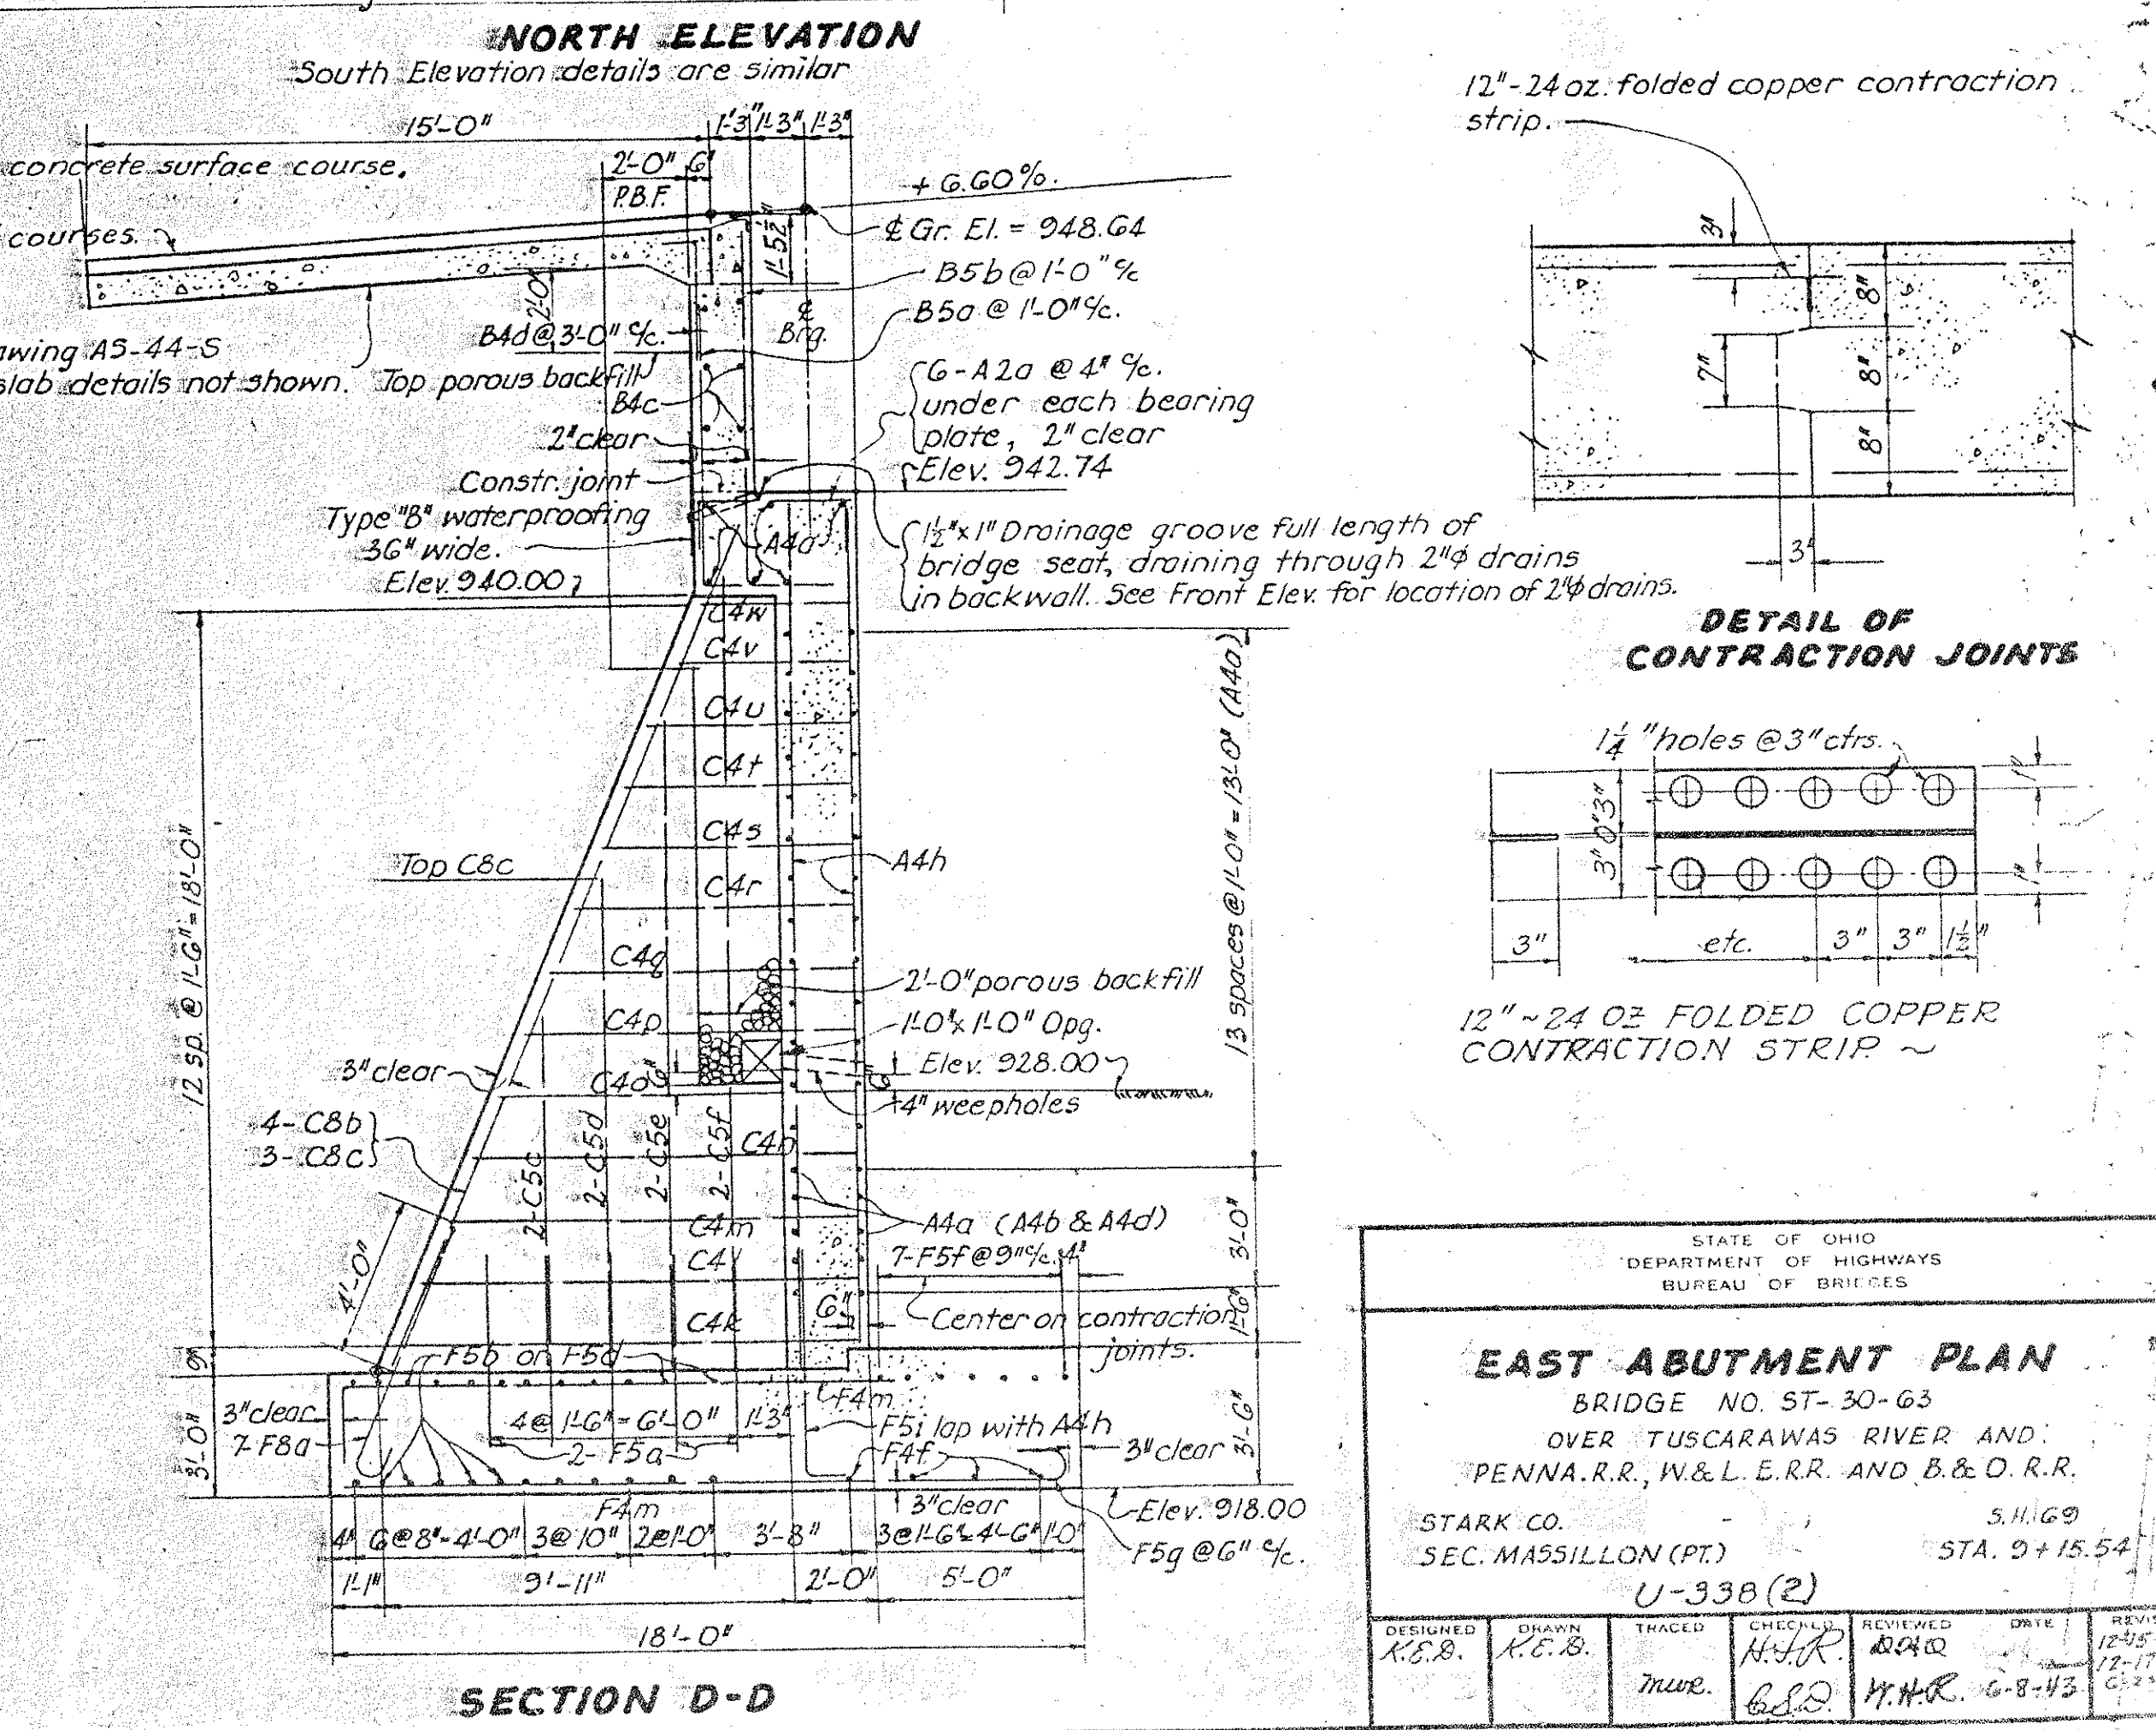 NORTH ELEVATION
South Elevation details are similar
15'-0"
1'-3" 1'-3" 1'-3"
concrete surface course.
2'-0" 6"
P.B.F.
+6.60%.
courses.
1'-5½"
℄ Gr. El. = 948.64
B5b @ 1'-0" c/c
2'-0"
B4d @ 3'-0" c/c.
℄
Brg.
B5a @ 1'-0" c/c.
awing AS-44-S
slab details not shown.
Top porous backfill
B4c
6-A2a @ 4" c/c.
under each bearing
plate, 2" clear
2" clear
Elev. 942.74
Constr. joint
Type "B" waterproofing
36" wide.
A4a
1½"x1" Drainage groove full length of
bridge seat, draining through 2"ϕ drains
in backwall. See Front Elev. for location of 2"ϕ drains.
Elev. 940.00
C4w
C4v
C4u
C4t
C4s
C4r
C4q
C4p
C4o
C4n
C4m
C4k
12 sp. @ 1'-6" = 18'-0"
13 spaces @ 1'-0" = 13'-0" (A4a)
Top C8c
A4h
2'-0" porous backfill
1'-0"x1'-0" Opg.
Elev. 928.00
6"
6"
4" weepholes
3" clear
4-C8b
3-C8c
2-C5c
2-C5d
2-C5e
2-C5f
4'-0"
A4a (A4b & A4d)
7-F5f @ 9" c/c. 4"
3'-0"
1'-6"
6"
Center on contraction
joints.
9"
F5b on F5d
F4m
3" clear
7-F8a
3'-0"
4 @ 1'-6" = 6'-0" 1'-3"
2-F5a
F5i lap with A4h
F4f
3" clear
3'-6"
F4m
3" clear
Elev. 918.00
4" 6@8"-4'-0" 3@10" 2@1'-0" 3'-8" 3@1'-6"=4'-6" 1'-0"
F5g @ 6" c/c.
1'-1" 9'-11" 2'-0" 5'-0"
18'-0"
SECTION D-D
12"-24 oz. folded copper contraction
strip.
3"
8"
7"
8"
8"
3"
DETAIL OF
CONTRACTION JOINTS
1¼" holes @ 3" ctrs.
1"
3" 0" 3"
1"
3"
etc. 3" 3" 1½"
12" ~ 24 OZ FOLDED COPPER
CONTRACTION STRIP. ~
STATE OF OHIO
DEPARTMENT OF HIGHWAYS
BUREAU OF BRIDGES
EAST ABUTMENT PLAN
BRIDGE NO. ST-30-63
OVER TUSCARAWAS RIVER AND
PENNA. R.R., W. & L. E. R.R. AND B. & O. R.R.
STARK CO. S.H. 69
SEC. MASSILLON (PT.) STA. 9+15.54
U-338(2)
DESIGNED DRAWN TRACED CHECKED REVIEWED DATE
K.E.D. K.E.D. H.J.R.
W.H.R. 6-8-43